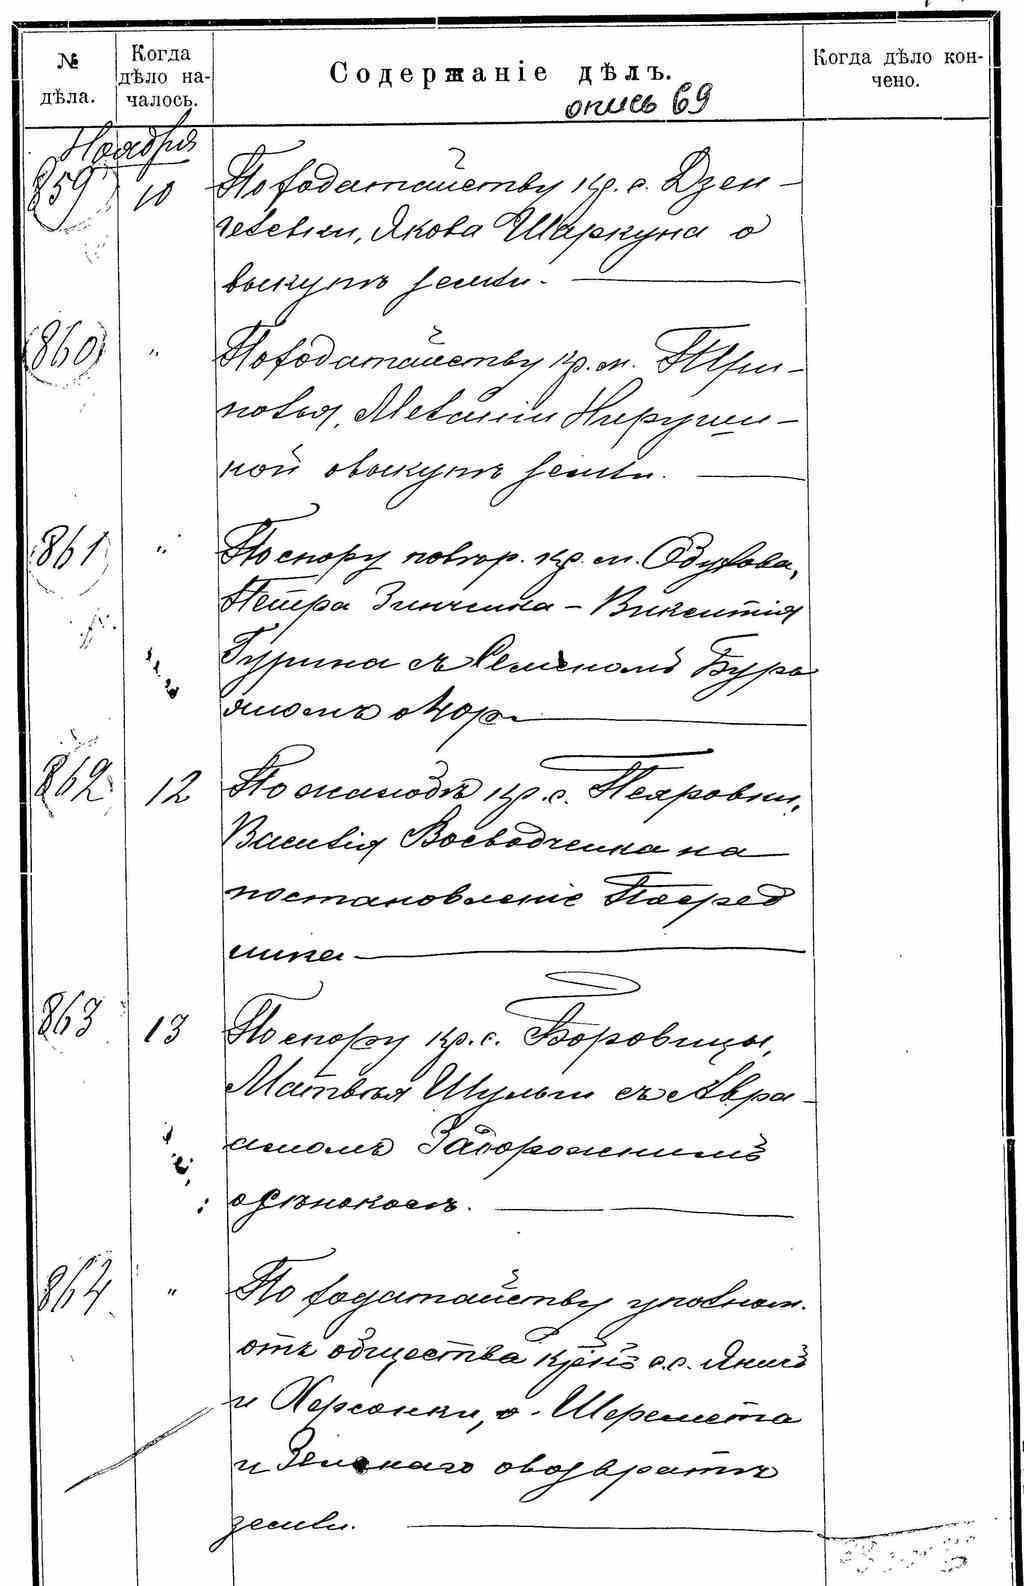 № дѣла.
Когда дѣло на-
чалось.
Содержаніе дѣлъ.
Когда дѣло кон-
чено.
опись 69
Ноября
859 10 По ходатайству кр. с. Дзен-
Якова Шаркуна о
выкупѣ земли.
860 " По ходатайству кр. м.
Мелании
ной о выкупѣ земли.
861 " По спору повтор. кр. м.
Петра Зинченка - Викентія
Гурина съ Семеномъ Бурь
яномъ о
862 12 По жалобѣ кр. с.
Василія Воеводченка на
постановленіе Посред
ника
863 13 По спору кр. с. Боровицы,
Матвѣя Шульги съ Авра-
амомъ Задорожнимъ
о сѣнокосѣ.
864 " По ходатайству уполном.
отъ общества кр-нъ с.с. Яничъ
и Херсонки, о. Шеремета
и Зелскаго о возвратѣ
земли.